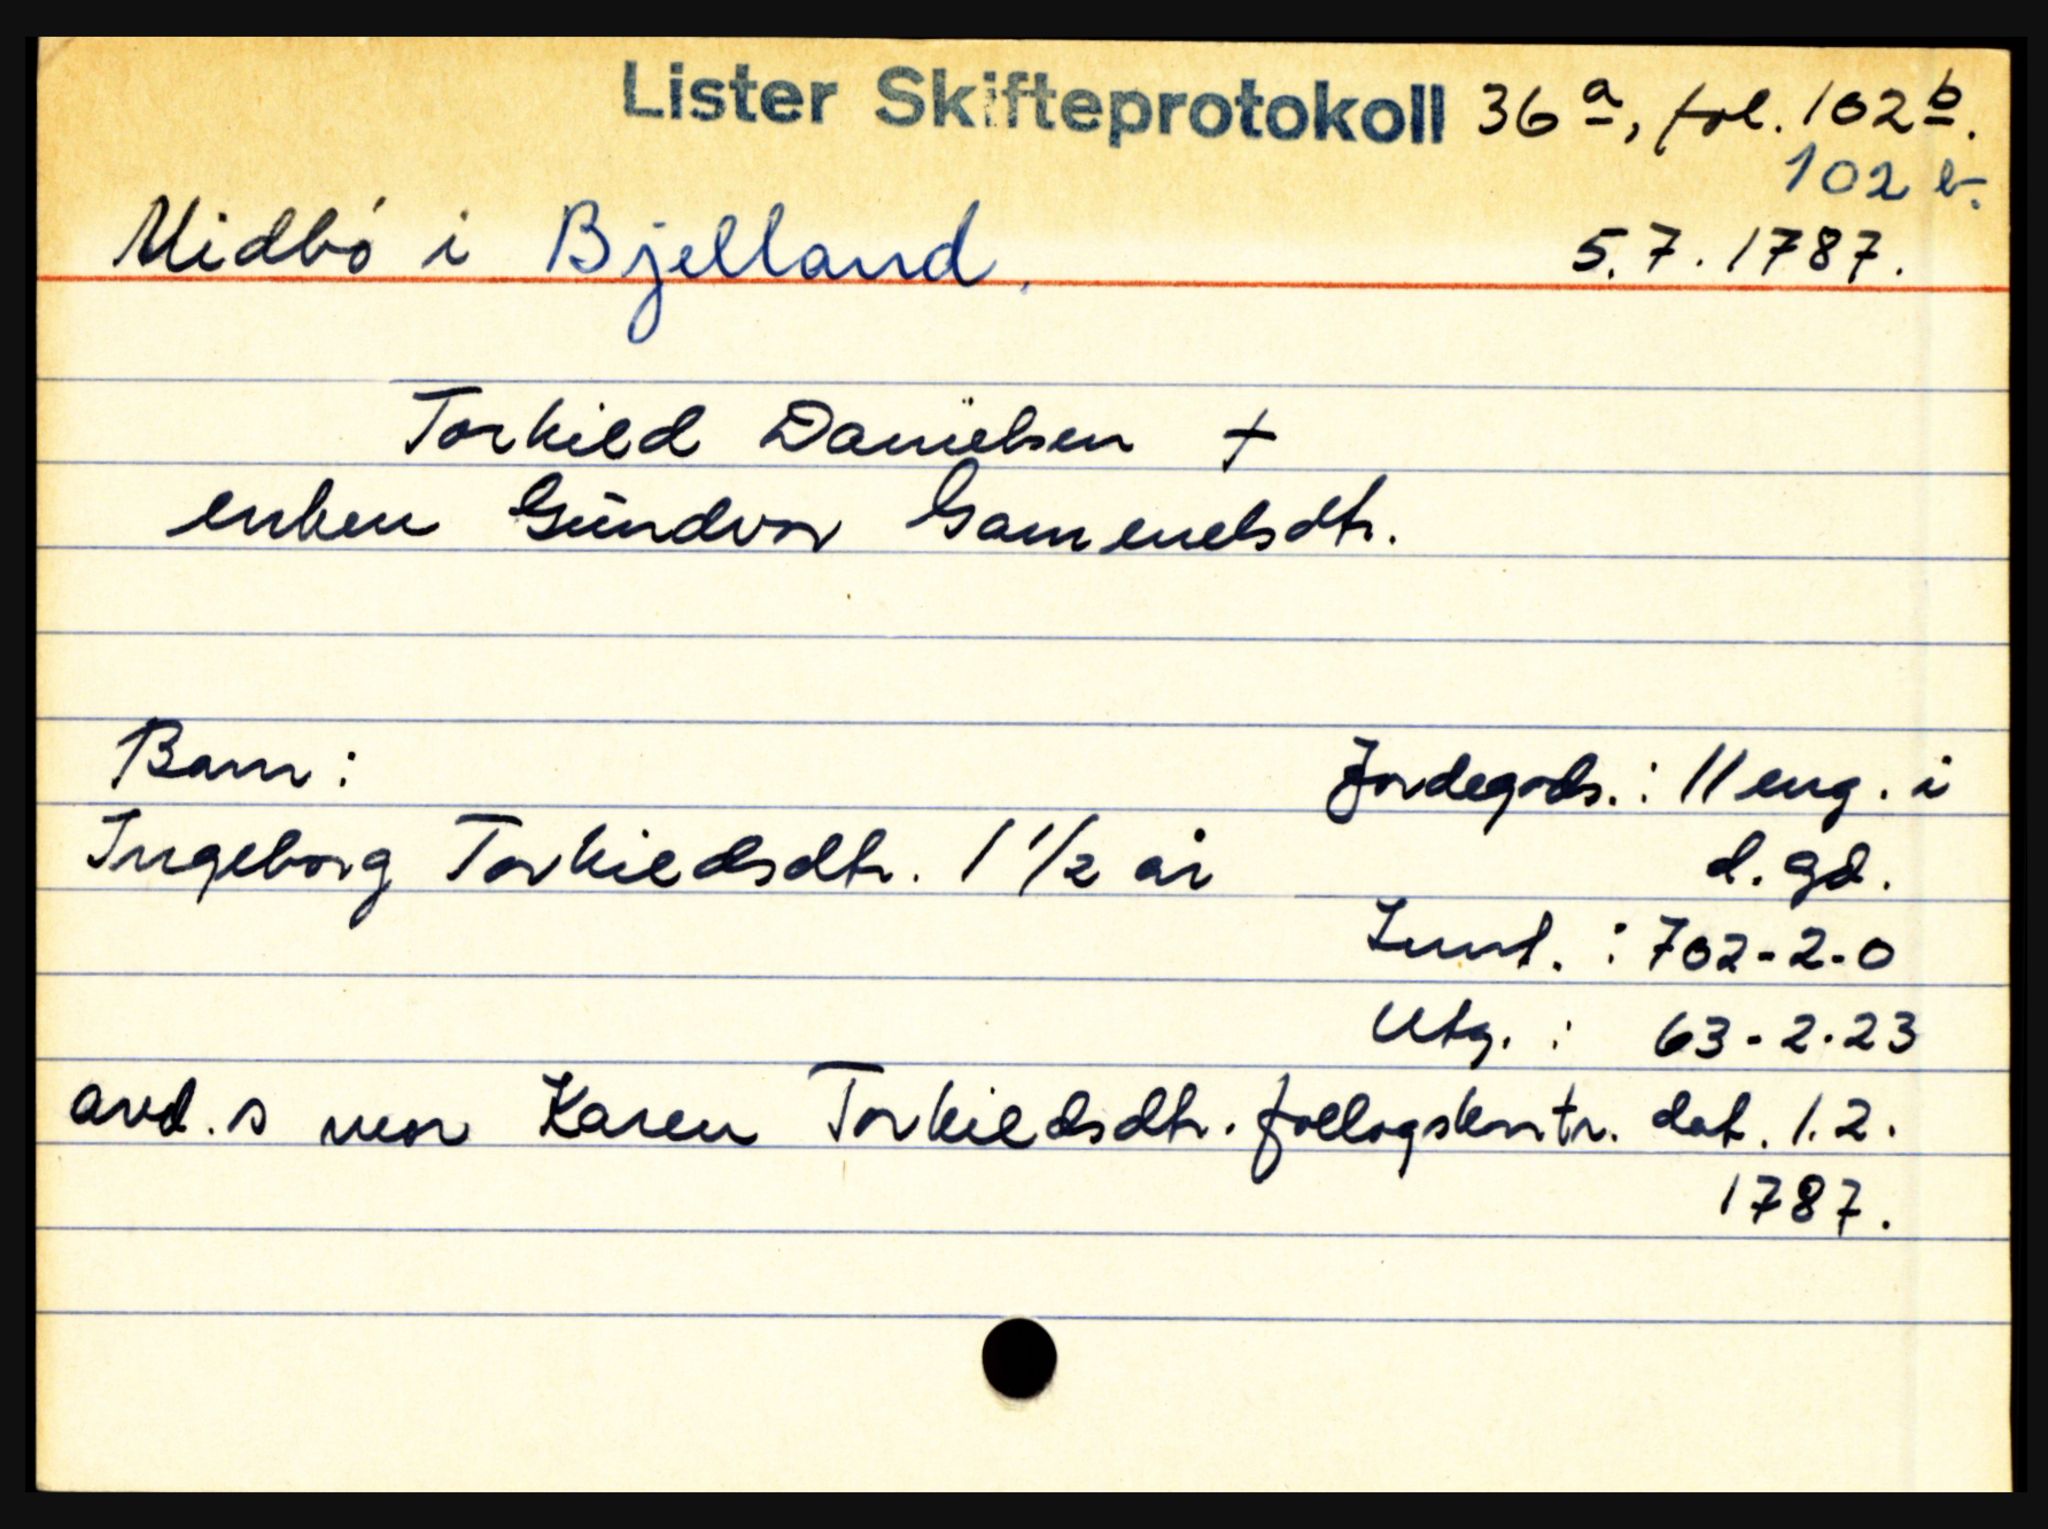 Lister Skifteprotokoll 36a, fol. 102b.
102 b.
Midbö i Bjelland, 5.7.1787.
Torkild Danielsen +
enken Gundvor Gamenelsdtr.
Barn: Jordegods.: 11 eng. i
Ingeborg Torkildsdtr. 1 1/2 år d. gd.
Innt. : 702-2-0
Utg. : 63-2-23
avd. s mor Karen Torkildsdtr. føllogskontr. dat. 1.2.
1787.